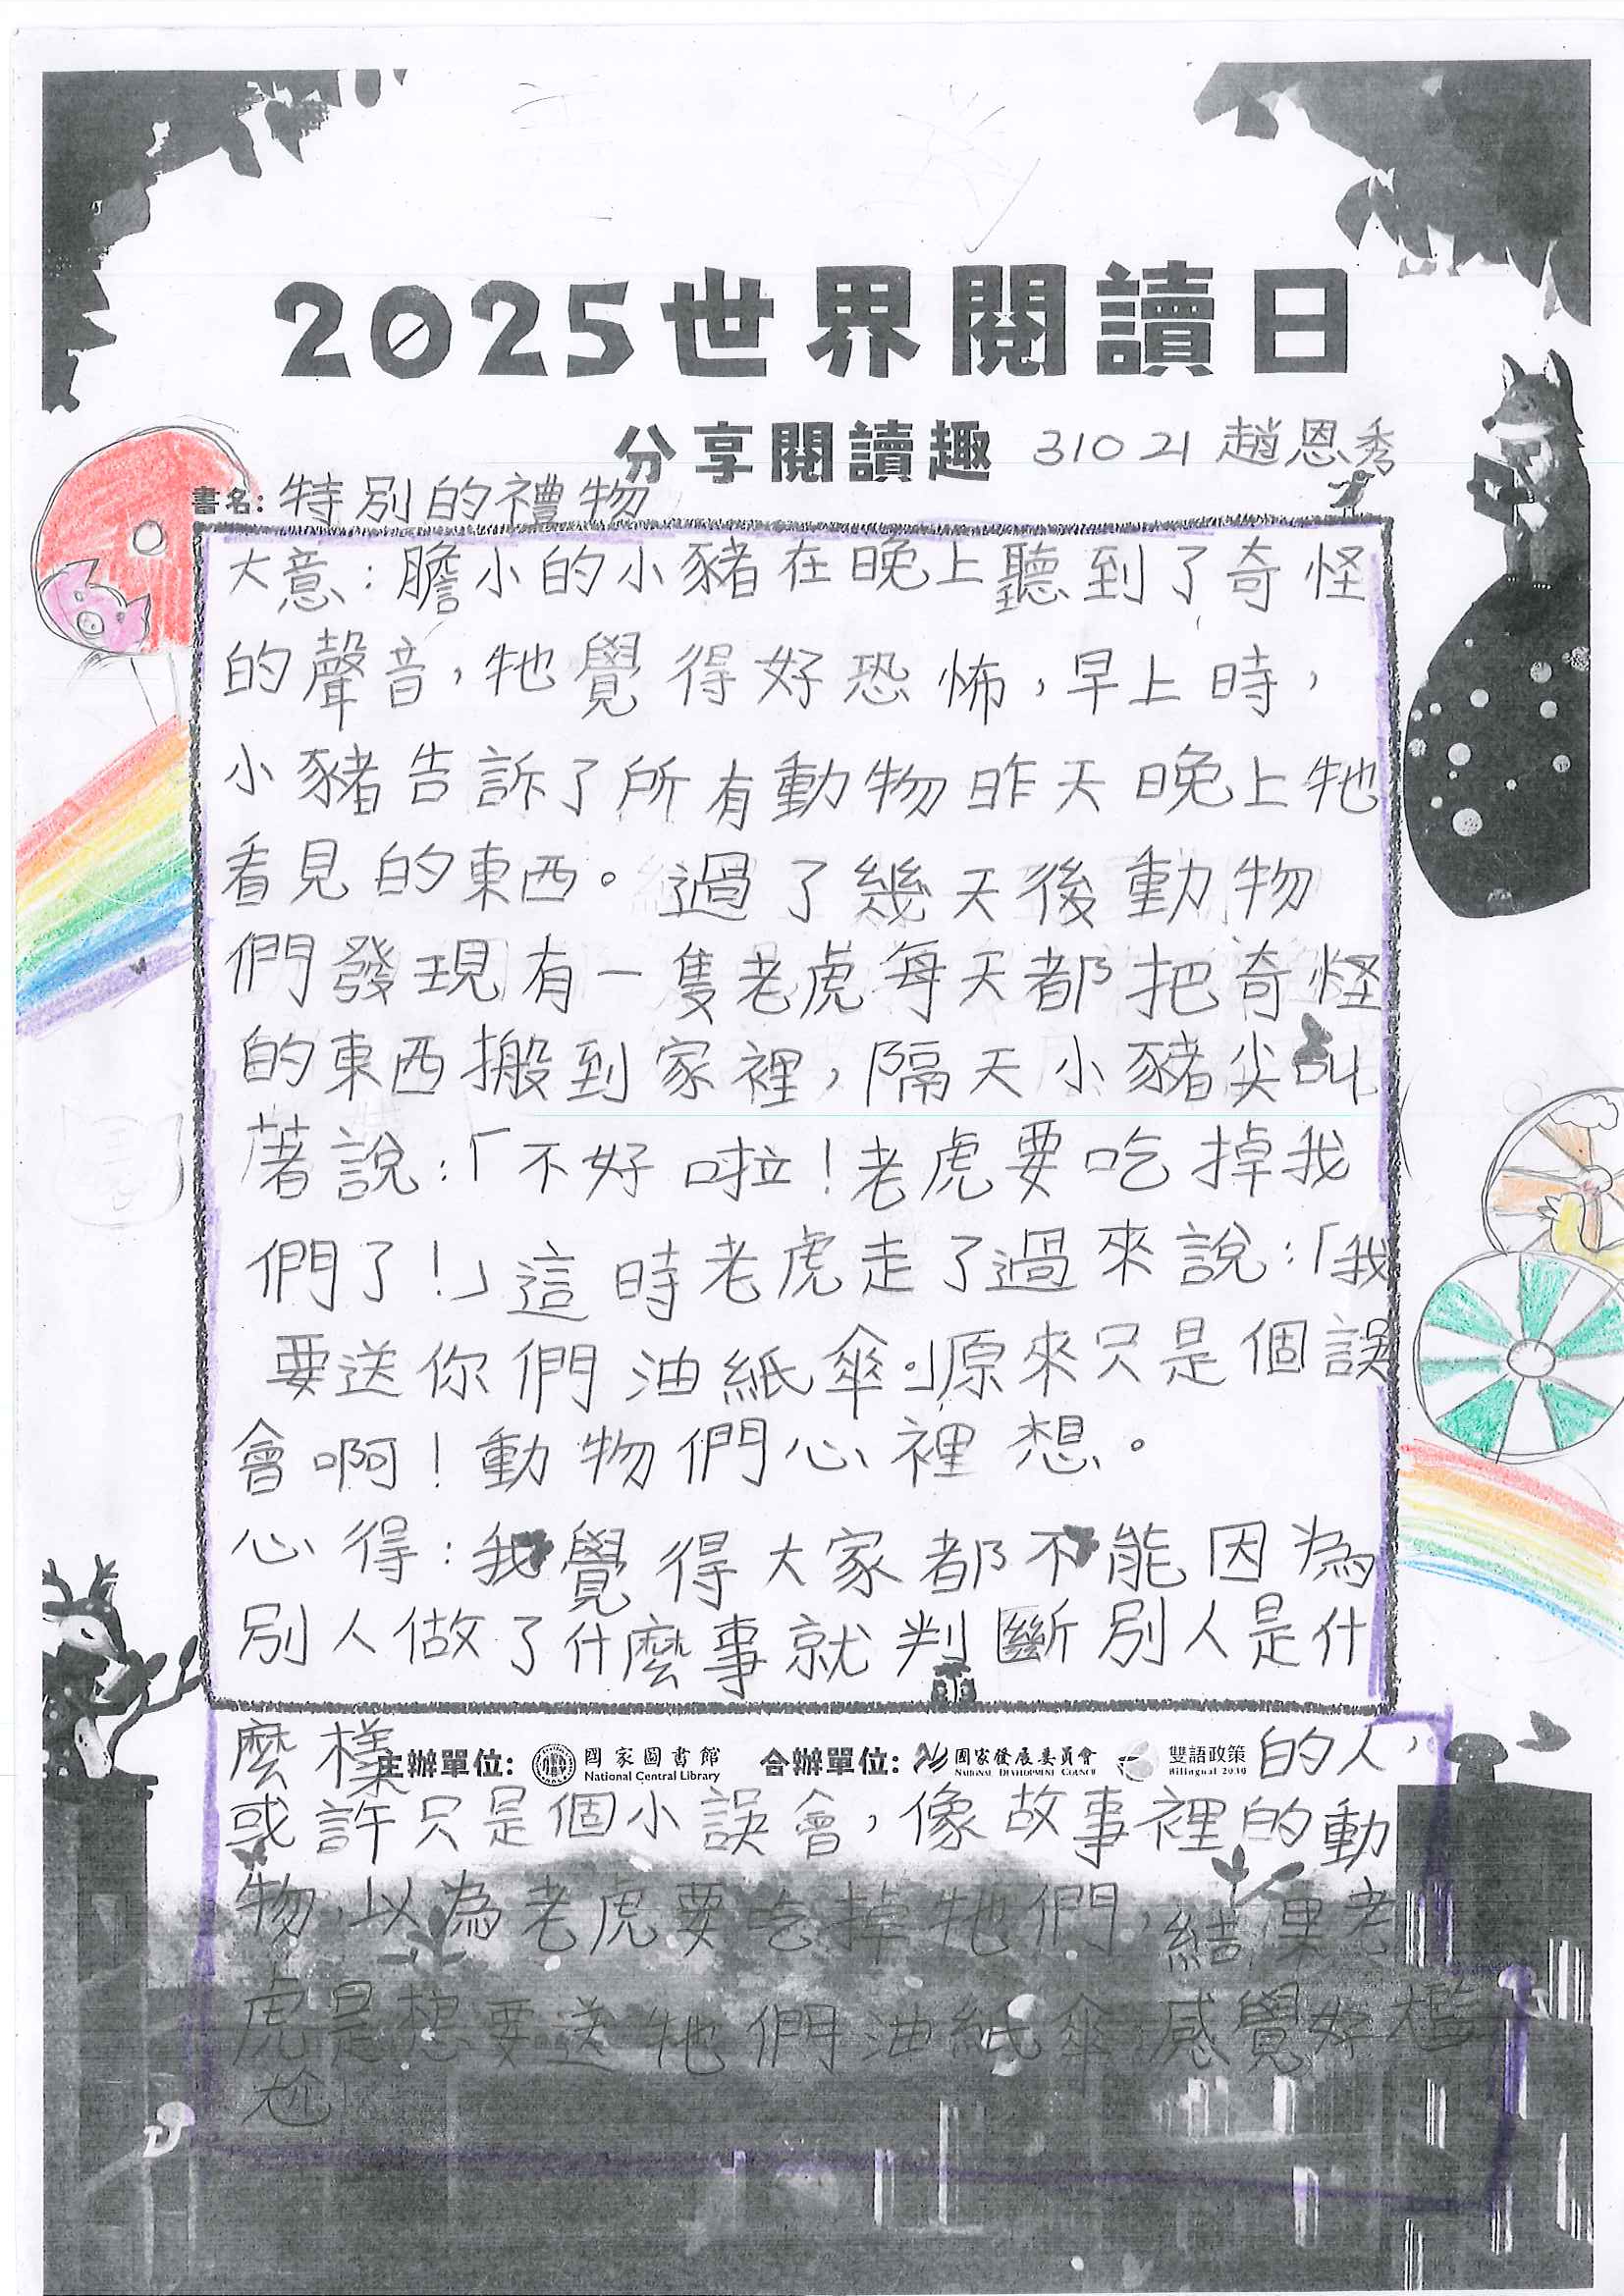 2025世界閱讀日
分享閱讀趣 31021 趙恩秀
書名: 特別的禮物
大意:膽小的小豬在晚上聽到了奇怪
的聲音,牠覺得好恐怖,早上時,
小豬告訴了所有動物昨天晚上牠
看見的東西。過了幾天後動物
們發現有一隻老虎每天都把奇怪
的東西搬到家裡,隔天小豬尖叫
著說:「不好啦!老虎要吃掉我
們了!」這時老虎走了過來說:「我
要送你們油紙傘。」原來只是個誤
會啊!動物們心裡想。
心得:我覺得大家都不能因為
別人做了什麼事就判斷別人是什
麼樣的人,
主辦單位: 國家圖書館 National Central Library 合辦單位: 國家發展委員會 NATIONAL DEVELOPMENT COUNCIL 雙語政策 Bilingual 2030
或許只是個小誤會,像故事裡的動
物,以為老虎要吃掉牠們,結果老
虎是想要送牠們油紙傘,感覺好尷
尬